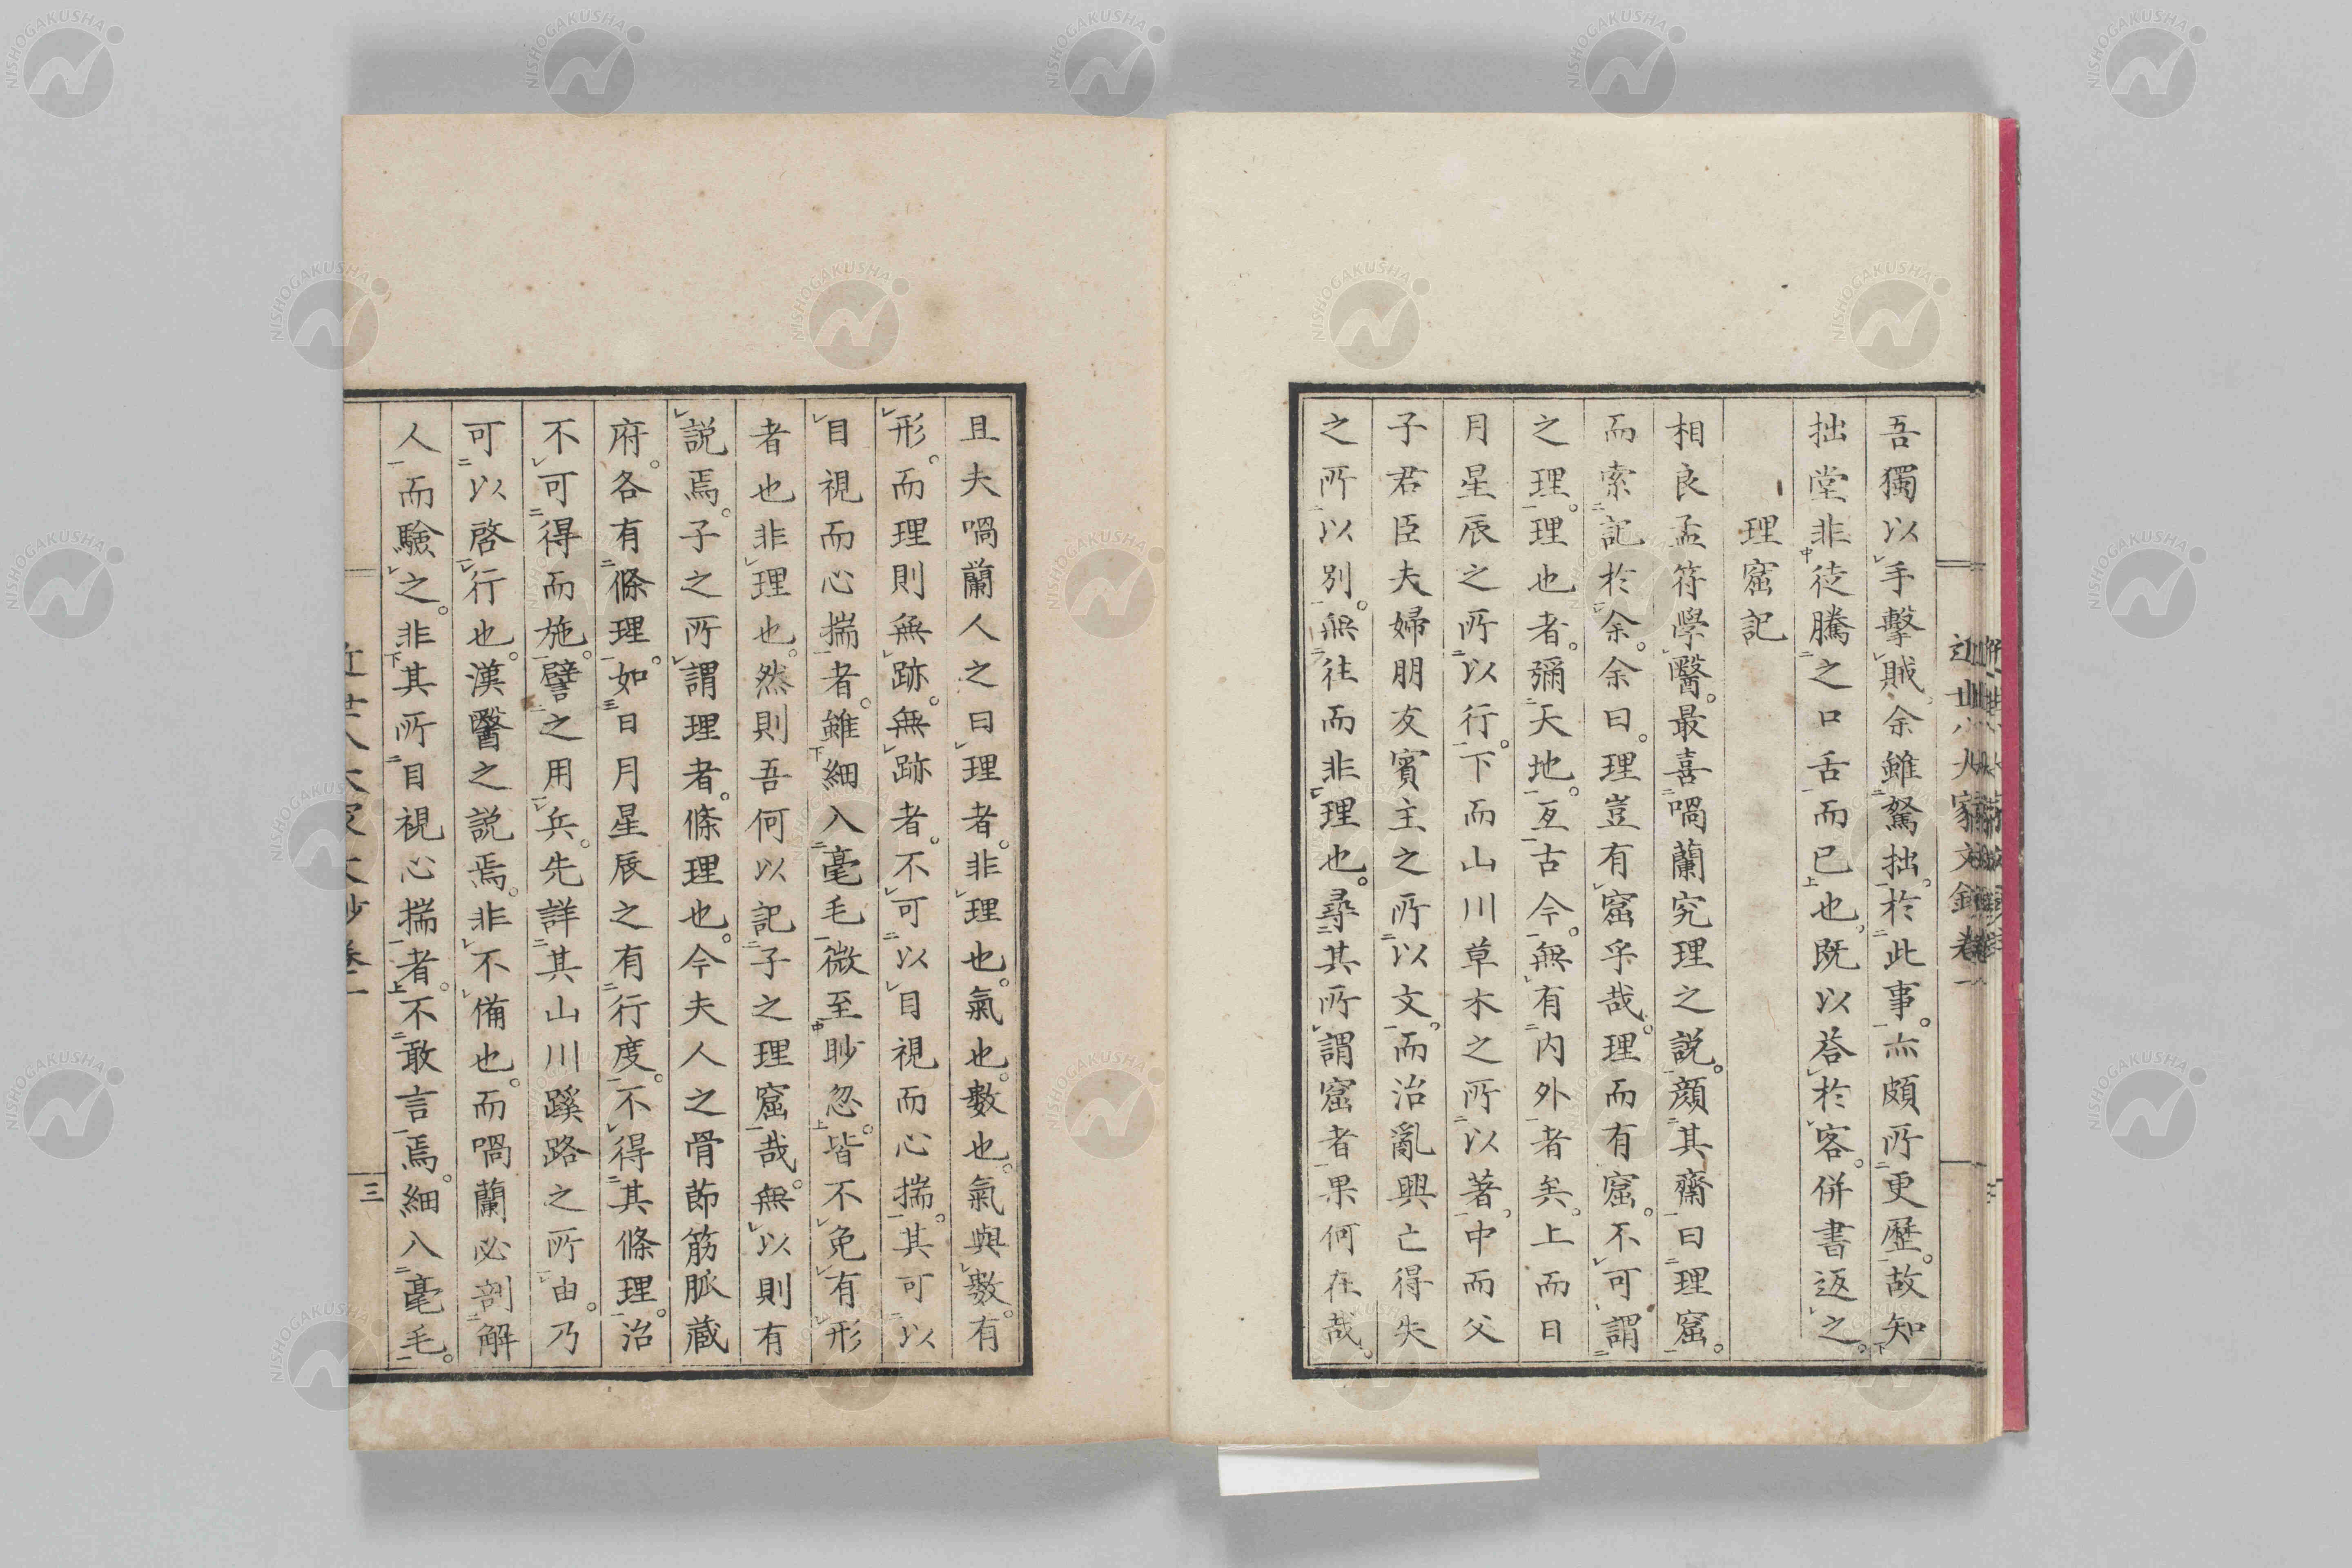 吾獨以手擊賊。余雖駑拙。於此事。亦頗所更歷。故知
拙堂非徒騰之口舌而已也。既以荅於客。併書返之。
理窟記
相良孟符學醫。最喜喎蘭究理之說。顏其齋曰理窟。
而索記於余。余曰。理豈有窟乎哉。理而有窟。不可謂
之理。理也者。彌天地。亙古今。無有內外者矣。上而日
月星辰之所以行。下而山川草木之所以著。中而父
子君臣夫婦朋友賓主之所以文。而治亂興亡得失
之所以別。無往而非理也。尋其所謂窟者果何在哉。
且夫喎蘭人之曰理者。非理也。氣也。數也。氣與數。有
形。而理則無跡。無跡者。不可以目視而心揣。其可以
目視而心揣者。雖細入毫毛微至眇忽。皆不免有形
者也非理也。然則吾何以記子之理窟哉。無以則有
說焉。子之所謂理者。條理也。今夫人之骨節筋脈藏
府。各有條理。如日月星辰之有行度。不得其條理。治
不可得而施。譬之用兵。先詳其山川蹊路之所由。乃
可以啓行也。漢醫之說焉。非不備也。而喎蘭必剖解
人而驗之。非其所目視心揣者。不敢言焉。細入毫毛。
三